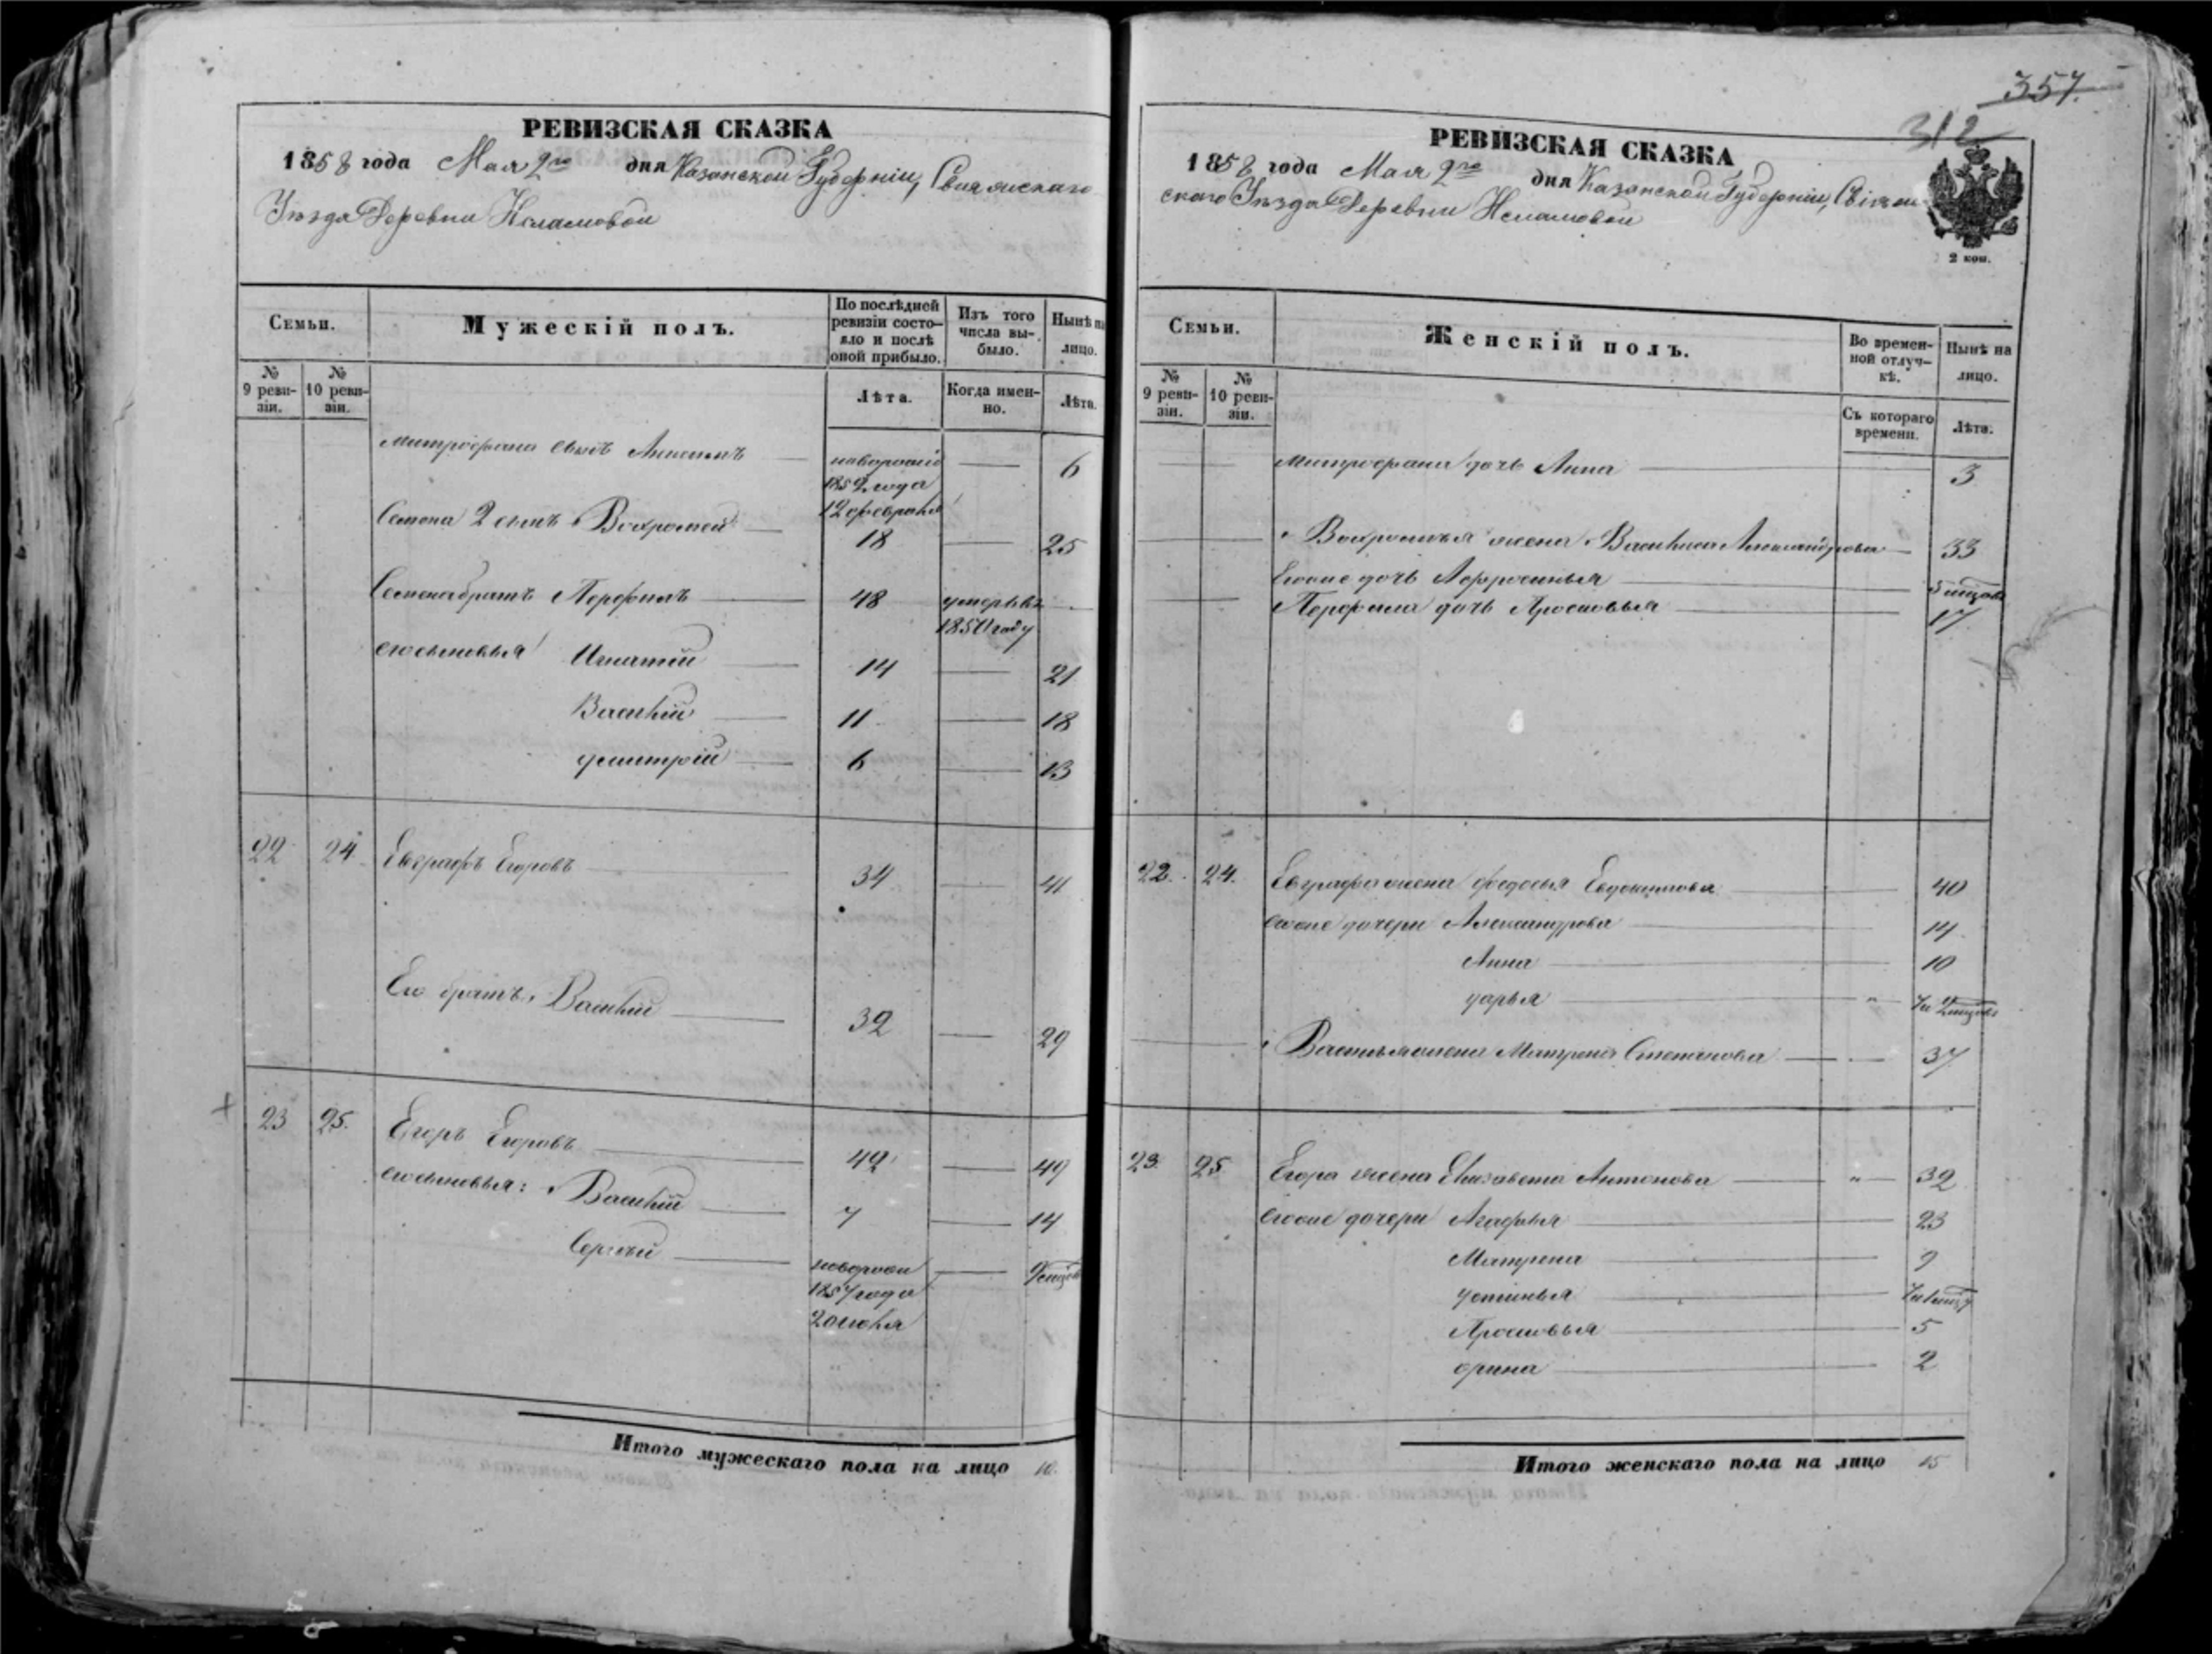 РЕВИЗСКАЯ СКАЗКА
1858 года Мая 2го дня Казанской Губерніи, Свіяжскаго
Уѣзда Деревни Исламовой
Семьи.
Мужескій полъ.
По послѣдней ревизіи состояло и послѣ оной прибыло.
Изъ того числа выбыло.
Нынѣ на лицо.
№ 9 ревизіи.
№ 10 ревизіи.
Лѣта.
Когда именно.
Лѣта.
Митрофана сынъ новорожд 6
1852 года
12 февраля
Семона 2 сынъ Вахромей 18 25
Семена братъ Перфилъ 48 умеръ въ
1850 году
его сыновья Игнатій 14 21
Василій 11 18
Дмитрій 6 13
22 24 Евграфъ Егоровъ 34 41
Его братъ Василій 32 29
23 25. Егоръ Егоровъ 42 49
его сыновья: Василій 7 14
Сергѣй новорож
1857 года
2 июля
Итого мужескаго пола на лицо 10.
357.
312
РЕВИЗСКАЯ СКАЗКА
1858 года Мая 2го дня Казанской Губерніи, Свіяж
скаго Уѣзда Деревни Исламовой
2 коп.
Семьи.
Женскій полъ.
Во временной отлучкѣ.
Нынѣ на лицо.
№ 9 ревизіи.
№ 10 ревизіи.
Съ котораго времени.
Лѣта.
Митрофана дочь Анна 3
Вахромѣя жена Василиса Александрова 33
Ево дочь Афросинья 5 мцовъ
Перфила дочь Просковья 17
22. 24. Евграфа жена федосья Евдокимова 40
дочери Александра 14
Анна 10
дарья
Василья жена Матрена Степанова 37
23. 25 Егора жена Елизавета Антонова 32
дочери Агафья 23
Матрена 9
устинья
Просковья 5
орина 2
Итого женскаго пола на лицо 15